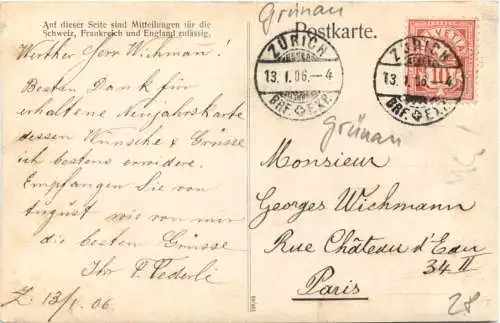 Auf dieser Seite sind Mitteilungen für die
Schweiz, Frankreich und England zulässig.
Werther Herr Wichmann!
Besten Dank für
erhaltene Neujahrskarte
dessen Wünsche & Grüsse
ich bestens erwidere.
Empfangen Sie von
August wie von mir
die besten Grüsse
Ihr P. Federli
Z 13/I. 06.
Grünau
Postkarte.
ZÜRICH
13.I.06.–4
BRF. EXP.
ZÜRICH
13.I.06.–4
BRF. EXP.
HELVETIA
10
Grünau
Monsieur
Georges Wichmann
Rue Château d'Eau
34 II
Paris
28